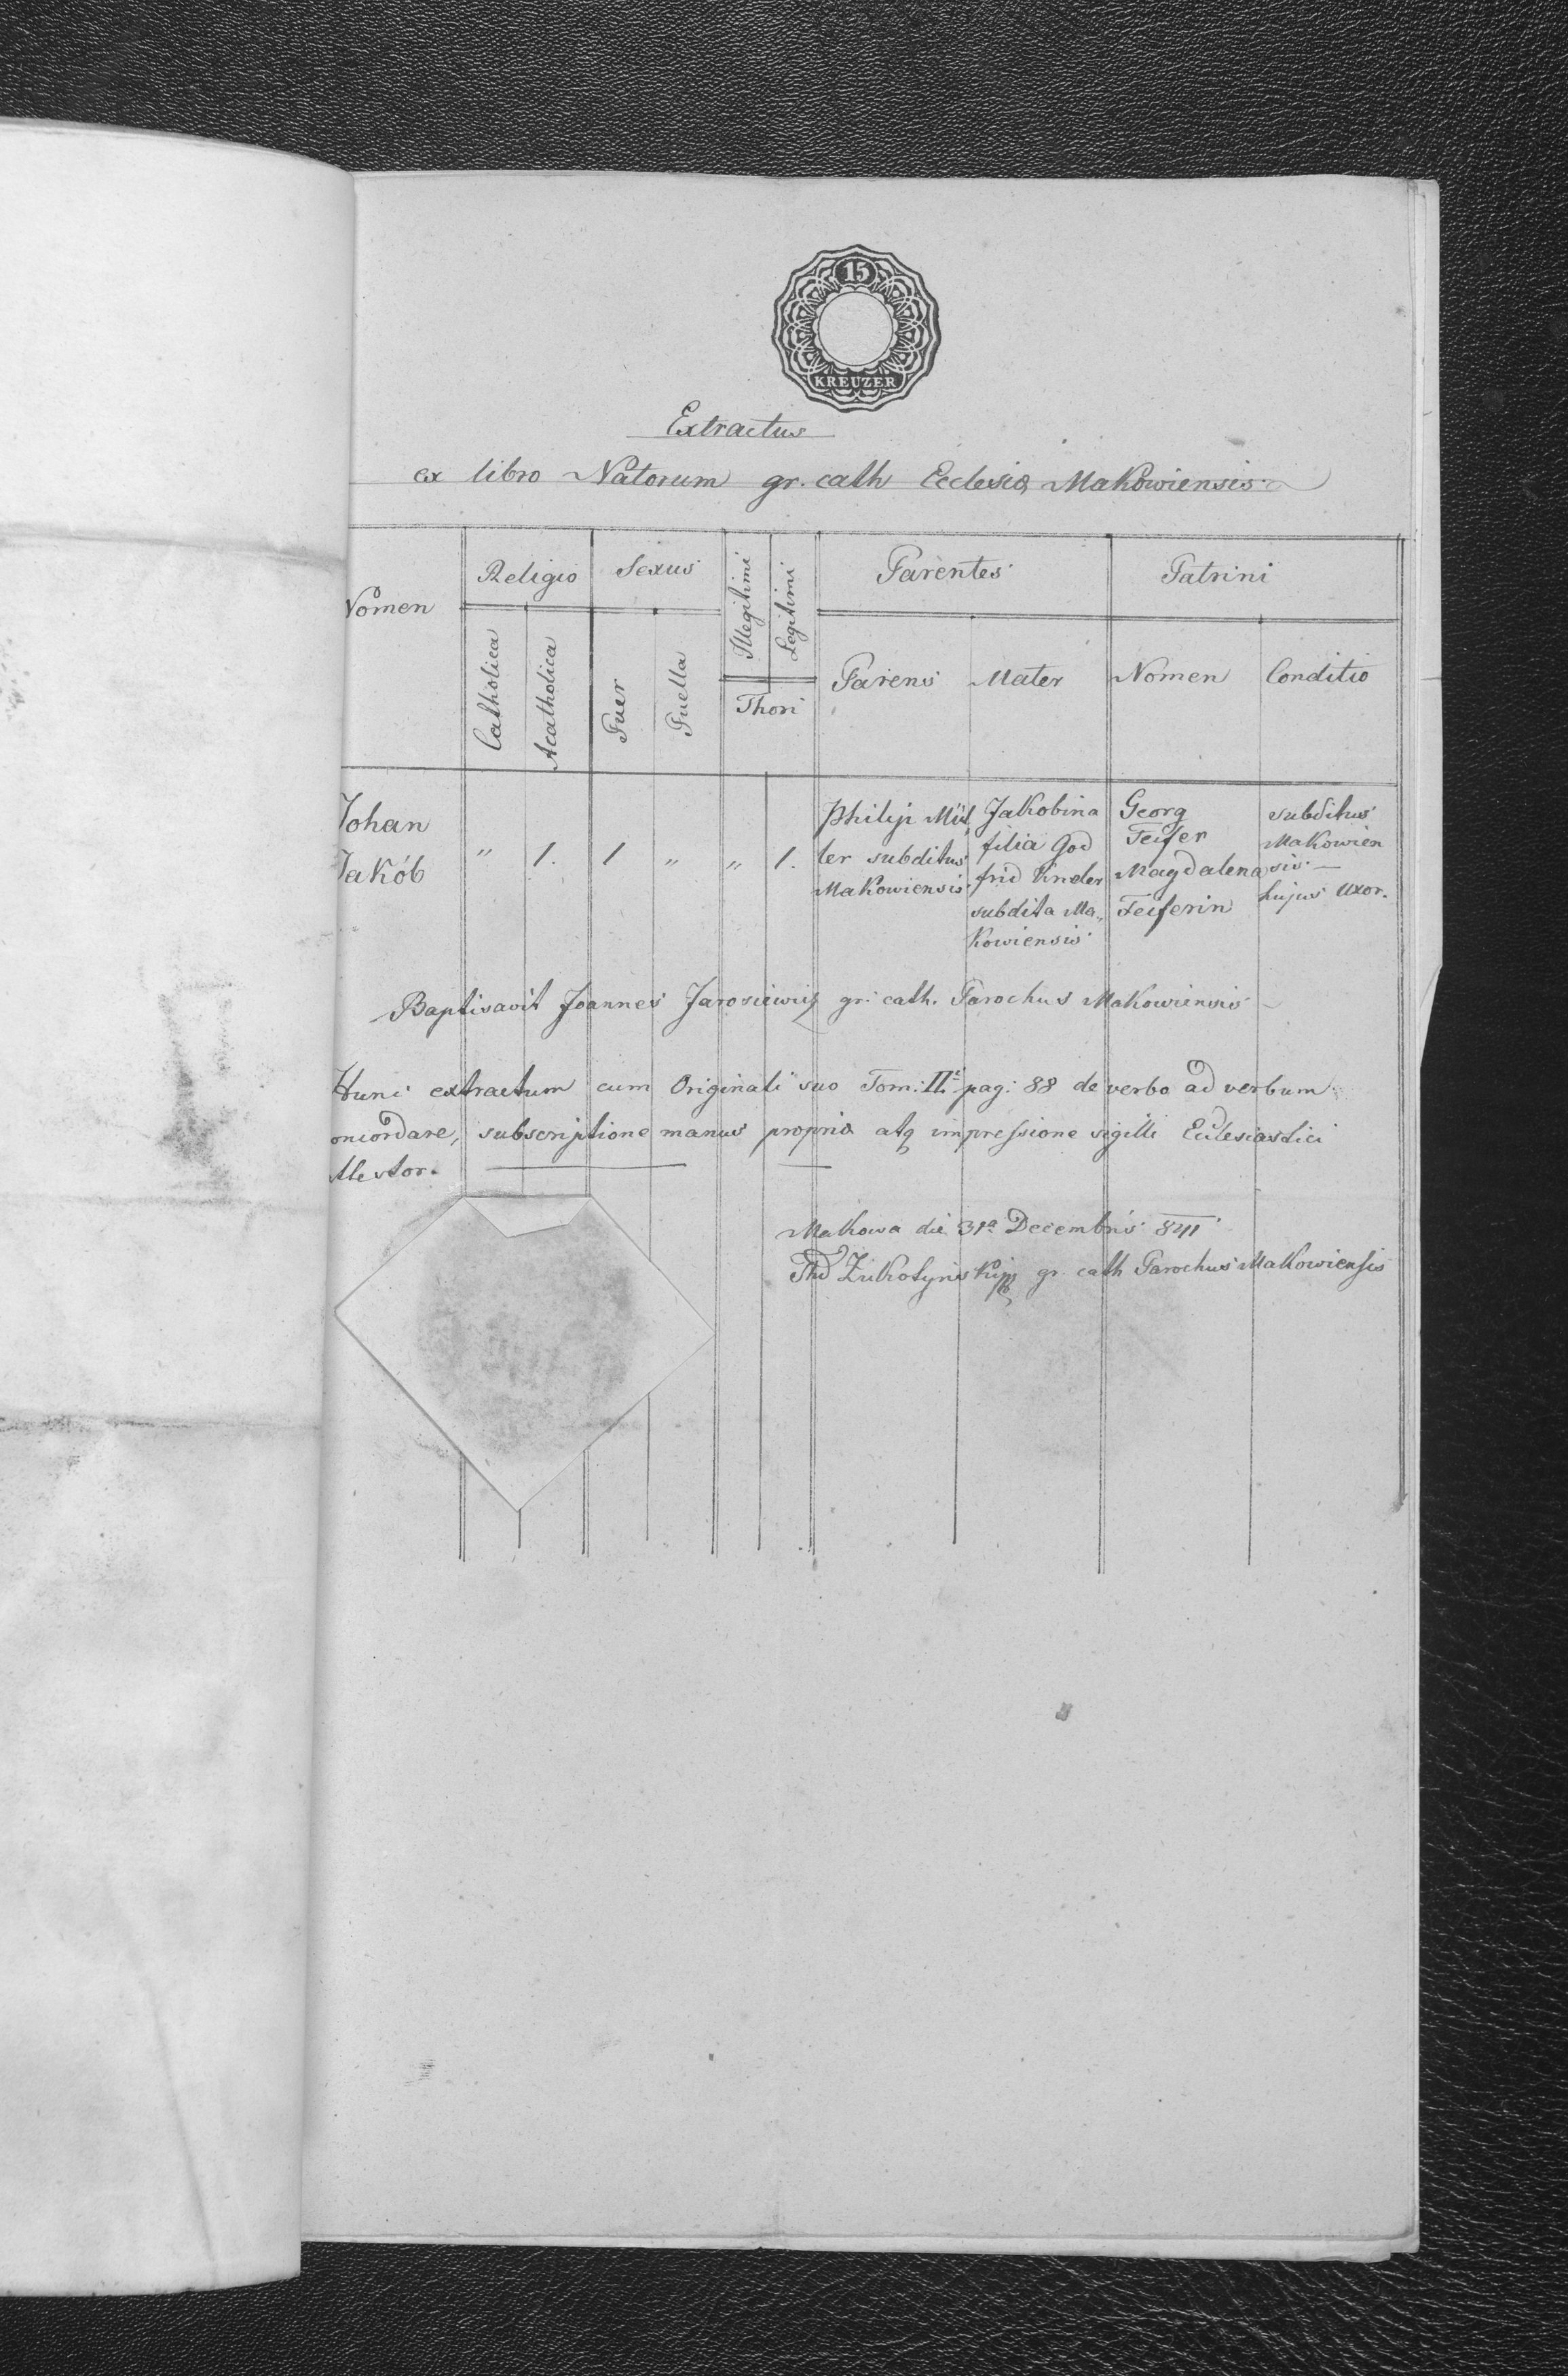 15
KREUZER
Extractus
ex libro Natorum gr. cath Ecclesiæ Makowiensis
Nomen
Religio
Catholica
Acatholica
Sexus
Puer
Puella
Illegitimi
Legitimi
Thori
Parentes
Parens
Mater
Patrini
Nomen
Conditio
Johan
Jakób
"
1.
1
"
"
1.
Philip Mül
ler subditus
Makowiensis
Jakobina
filia God
frid Kinder
subdita Ma„
kowiensis
Georg
Feifer
Magdalena
Feiferin
subditus
Makowien
sis —
hujus uxor.
Baptisavit Joannes Jarosiewicz gr: cath. Parochus Makowiensis
Hunc extractum cum Originali suo Tom: II. pag: 88 de verbo ad verbum
oncordare, subscriptione manus propria atq impressione sigilli Ecclesiastici
ttestor.
Makowa die 31ª Decembris 841
gr cath Parochus Makowiensis